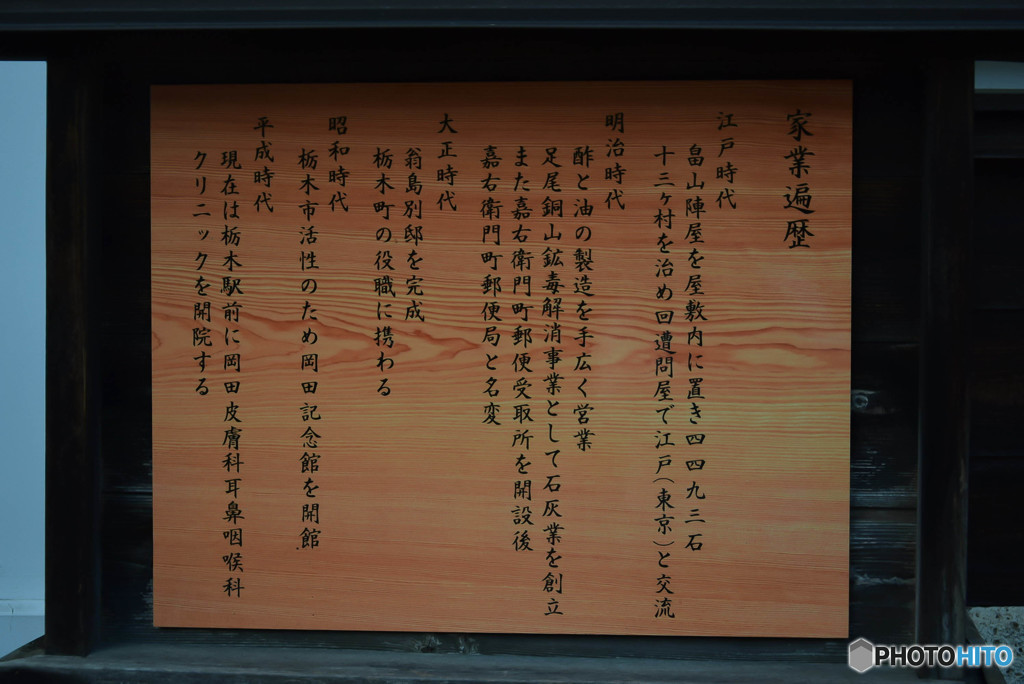 家業遍歴
江戸時代
畠山陣屋を屋敷内に置き四四九三石
十三ヶ村を治め回遭問屋で江戸(東京)と交流
明治時代
酢と油の製造を手広く営業
足尾銅山鉱毒解消事業として石灰業を創立
また嘉右衛門町郵便受取所を開設後
嘉右衛門町郵便局と名変
大正時代
翁島別邸を完成
栃木町の役職に携わる
昭和時代
栃木市活性のため岡田記念館を開館
平成時代
現在は栃木駅前に岡田皮膚科耳鼻咽喉科
クリニックを開院する
PHOTOHITO